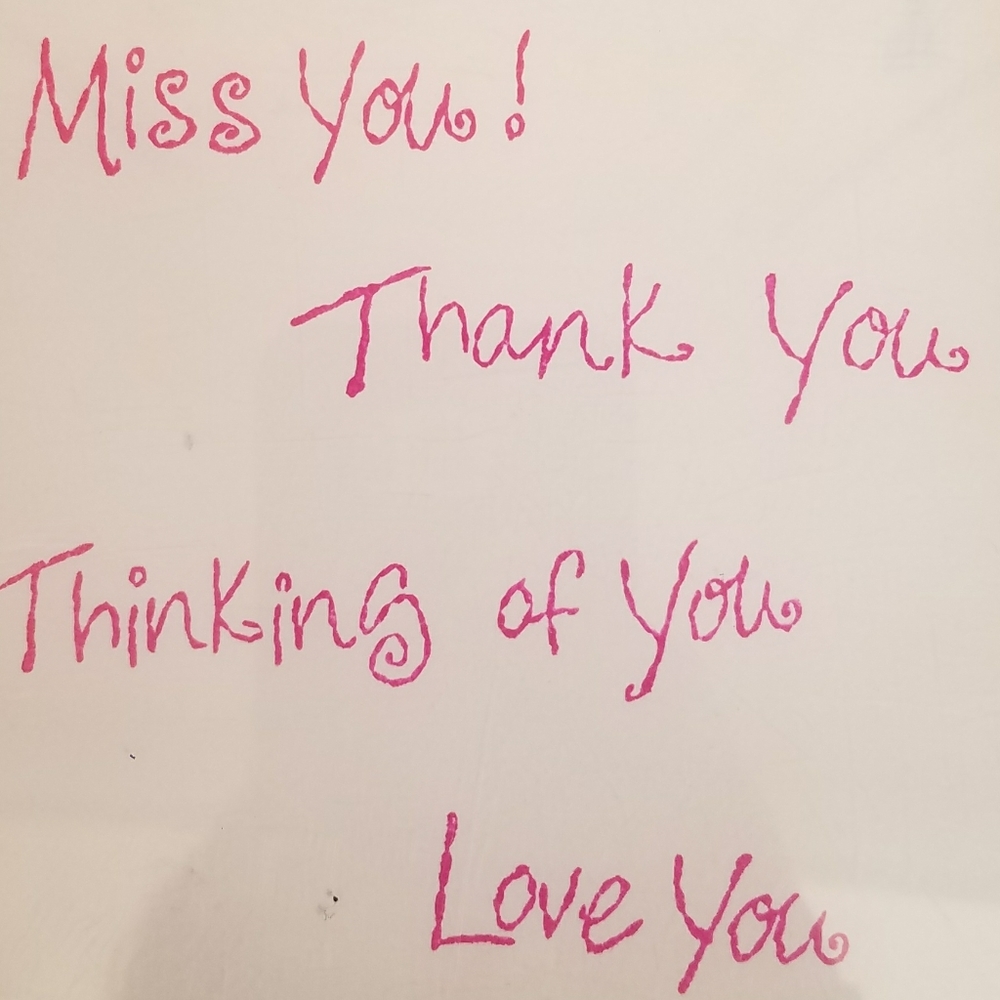 Miss You!
Thank You
Thinking of You
Love You